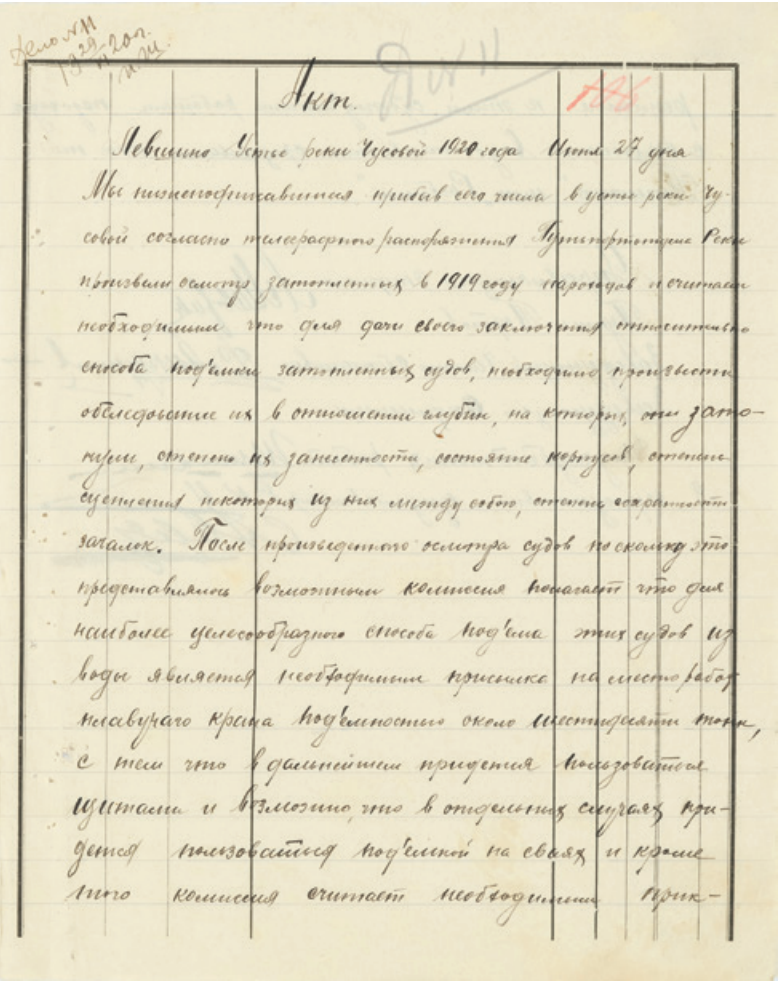 Дело № 11
19 29/VII 20 г.
Д № 11
106
Акт.
Левшино Устье реки Чусовой 1920 года Июля 27 дня
Мы нижеподписавшиеся прибыв сего числа в устье реки Чу-
совой согласно телеграфного распоряжения Реки
произвели осмотр затопленных в 1919 году пароходов и считаем
необходимым что для дачи своего заключения относительно
способа под'емки затопленных судов, необходимо произвести
обследование их в отношении глубин, на которых они зато-
нули, степени их занесенности, состояние корпусов, степени
сцепления некоторых из них между собою, степень сохранности
зачалок. После произведенного осмотра судов поскольку это
представлялось возможным комиссия полагает что для
наиболее целесообразного способа под'ема этих судов из
воды является необходимым присылка на место работ
плавучаго крана под'емностью около шестидесяти тонн,
с тем что в дальнейшем придется пользоваться
щитами и возможно, что в отдельных случаях при-
дется пользоваться под'емкой на сваях и кроме
того комиссия считает необходимым прик-